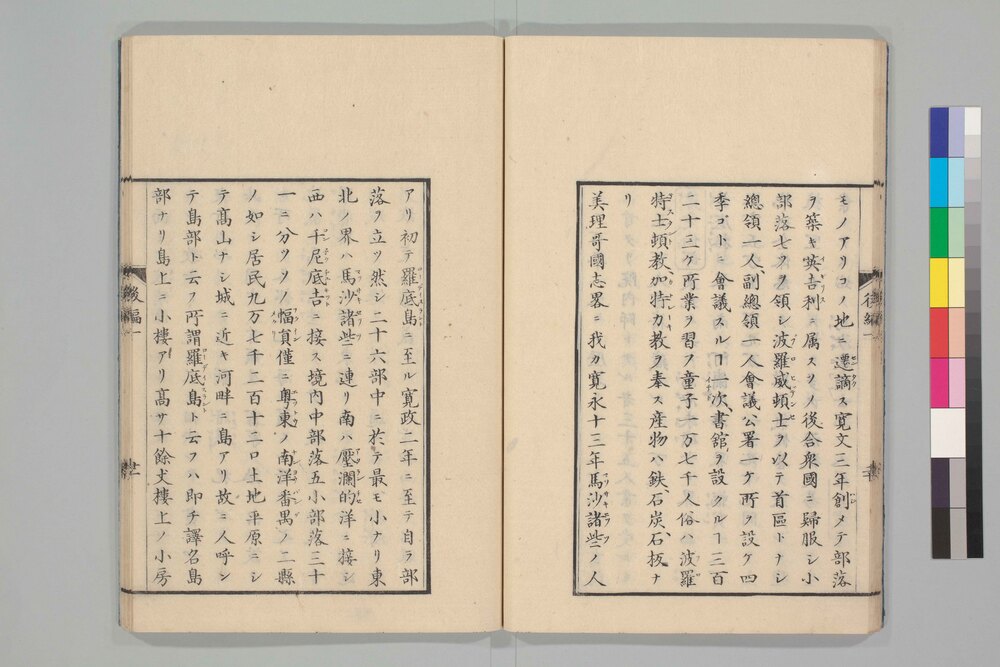 モノアリコノ地ニ遷謫ス寛文三年創メテ部落
ヲ築キ英吉利ニ属スソノ後合衆國ニ歸服シ小
部落七ツヲ領シ波羅威頓士ヲ以テ首區トナシ
總領一人副總領一人會議公署一ケ所ヲ設ケ四
季ゴトニ會議スルヿ一次書館ヲ設クルヿ三百
二十三ケ所業ヲ習フ童子一万七千人俗ハ波羅
特士頓教加特力教ヲ奉ス産物ハ鉄石炭石板ナ
リ
美理哥國志畧ニ我カ寛永十三年馬沙諸些ノ人
アリ初テ羅底島ニ至ル寛政二年ニ至テ自ラ部
落ヲ立ツ然シ二十六部中ニ於テ最モ小ナリ東
北ノ界ハ馬沙諸些ニ連リ南ハ壓瀾的洋ニ接シ
西ハ千尼底吉ニ接ス境内中部落五小部落三十
一ニ分ツソノ幅員僅ニ粤東ノ南洋番禺ノ二縣
ノ如シ居民九万七千二百十二口土地平原ニシ
テ高山ナシ城ニ近キ河畔ニ島アリ故ニ人呼ン
テ島部ト云フ所謂羅底島ト云フハ即チ譯名島
部ナリ島上ニ小樓アリ高サ十餘丈樓上ノ小房
後編一